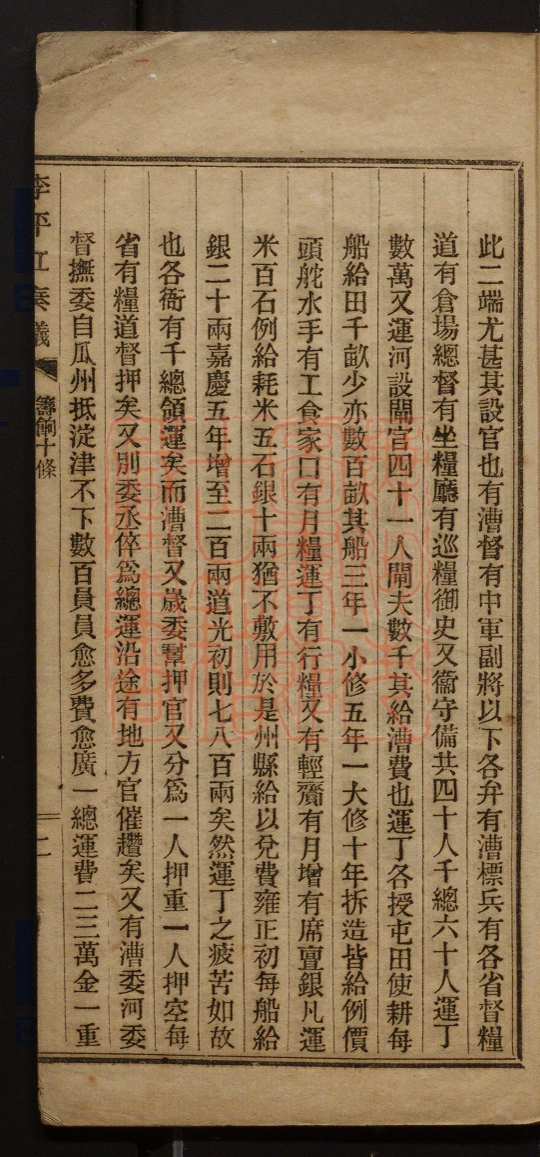 此二端尤甚其設官也有漕督有中軍副將以下各弁有漕標兵有各省督糧
道有倉場總督有坐糧廳有巡糧御史又衞守備共四十人千總六十人運丁
數萬又運河設閘官四十一人閘夫數千其給漕費也運丁各授屯田使耕每
船給田千畝少亦數百畝其船三年一小修五年一大修十年拆造皆給例價
頭舵水手有工食家口有月糧運丁有行糧又有輕齎有月增有席亶銀凡運
米百石例給耗米五石銀十兩猶不敷用於是州縣給以兌費雍正初每船給
銀二十兩嘉慶五年增至二百兩道光初則七八百兩矣然運丁之疲苦如故
也各衞有千總領運矣而漕督又歲委幫押官又分爲一人押重一人押空每
省有糧道督押矣又別委丞倅爲總運沿途有地方官催趲矣又有漕委河委
督撫委自瓜州抵淀津不下數百員員愈多費愈廣一總運費二三萬金一重
李平江奏議 籌餉十條 二